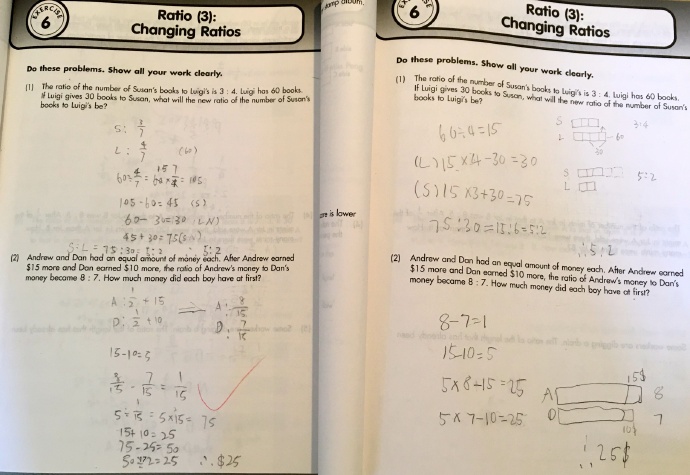 EXERCISE
6
Ratio (3):
Changing Ratios
Do these problems. Show all your work clearly.
(1) The ratio of the number of Susan's books to Luigi's is 3 : 4. Luigi has 60 books.
If Luigi gives 30 books to Susan, what will the new ratio of the number of Susan's
books to Luigi's be?
S: 3/7
L: 4/7 (60)
105 - 60 = 45 (S)
60 - 30 = 30
45 + 30 = 75
S:L = 75:30 = 5:2 ∴ 5:2
(2) Andrew and Dan had an equal amount of money each. After Andrew earned
$15 more and Dan earned $10 more, the ratio of Andrew's money to Dan's
money became 8 : 7. How much money did each boy have at first?
A: 1/2 + 15
A: 8/15
D: 1/2 + 10
D: 7/15
15-10=5
8/15 - 7/15 = 1/15
5÷1/15 = 5×15 = 75
15+10=25
75-25=50
50÷2=25 ∴ $25
stamp album.
are is lower
6
Ratio (3):
Changing Ratios
Do these problems. Show all your work clearly.
(1) The ratio of the number of Susan's books to Luigi's is 3 : 4. Luigi has 60 books.
If Luigi gives 30 books to Susan, what will the new ratio of the number of Susan's
books to Luigi's be?
60÷4=15
S
3:4
L
60
(L) 15×4-30=30
30
S
5:2
L
(S) 15×3+30=75
75:30=15:6=5:2
∴ 5:2
(2) Andrew and Dan had an equal amount of money each. After Andrew earned
$15 more and Dan earned $10 more, the ratio of Andrew's money to Dan's
money became 8 : 7. How much money did each boy have at first?
8-7=1
15-10=5
15$
5×8-15=25
A
8
5×7-10=25
D
7
10$
∴ 25$